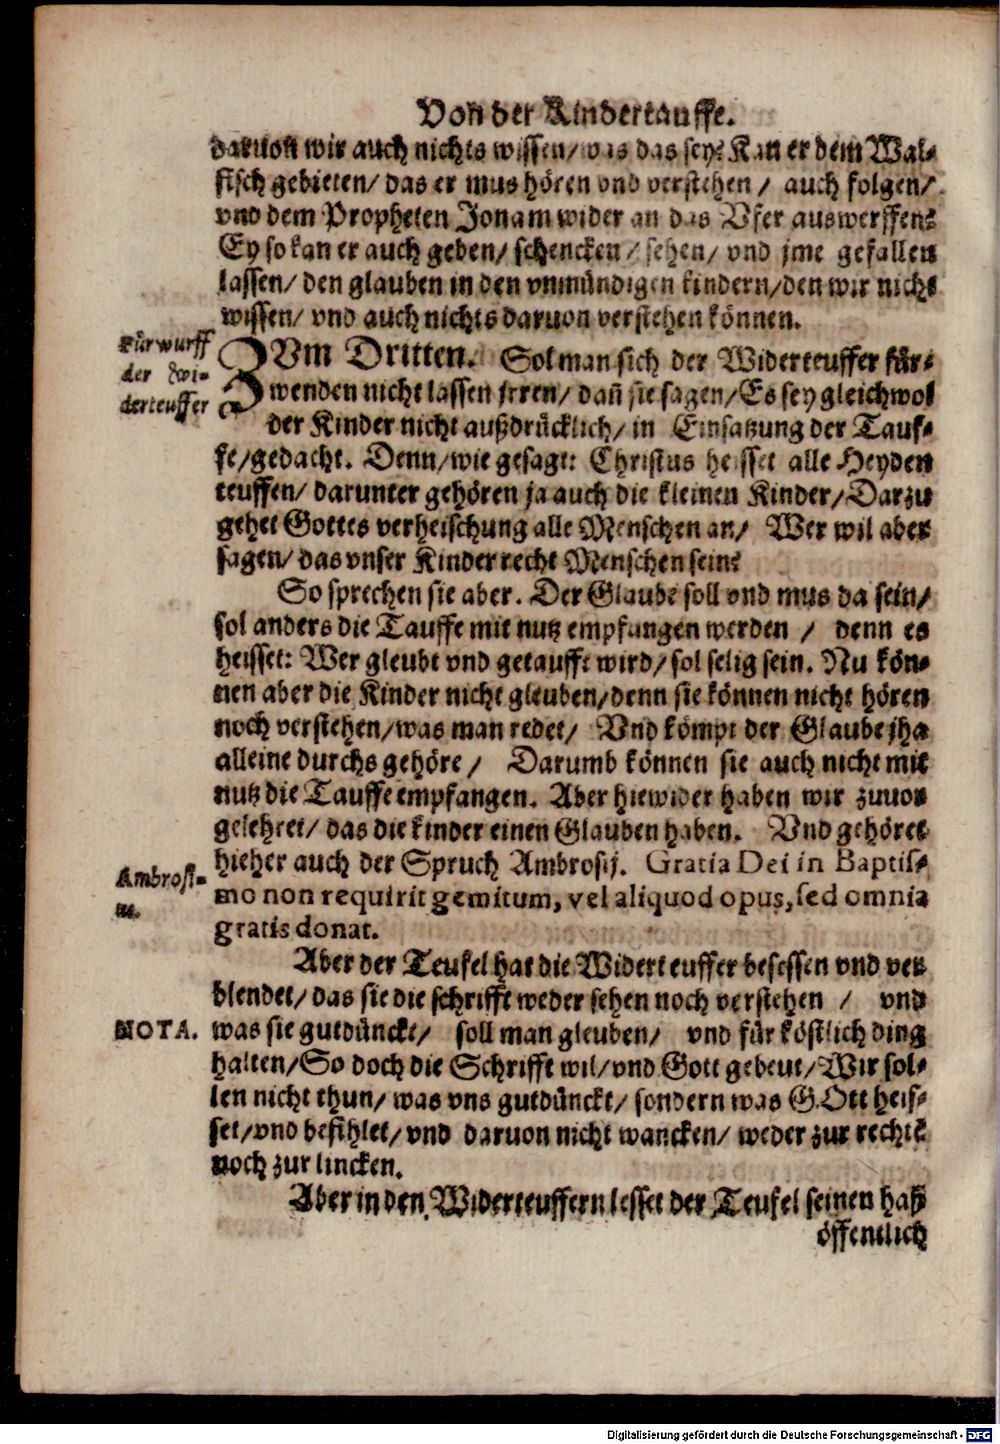 Von der Kindertauffe.
daruon wir auch nichts wissen/ was das sey? Kan er dem Wal-
fisch gebieten/ das er mus hören vnd verstehen / auch folgen/
vnd dem Propheten Jonam wider an das Vfer auswerffen?
Ey so kan er auch geben/ schencken/ sehen/ vnd jme gefallen
lassen/ den glauben in den vnmündigen kindern/ den wir nicht
wissen/ vnd auch nichts daruon verstehen können.
Fürwurff
der Wi-
derteuffer
ZVm Dritten. Sol man sich der Widerteuffer für-
wenden nicht lassen jrren/ dañ sie sagen/ Es sey gleichwol
der Kinder nicht außdrücklich/ in Einsatzung der Tauf-
fe/ gedacht. Denn/ wie gesagt: Christus heisset alle Heyden
teuffen/ darunter gehören ja auch die kleinen Kinder/ Darzu
gehet Gottes verheischung alle Menschen an/ Wer wil aber
sagen/ das vnser Kinder recht Menschen sein?
So sprechen sie aber. Der Glaube soll vnd mus da sein/
sol anders die Tauffe mit nutz empfangen werden / denn es
heisset: Wer gleubt vnd getaufft wird/ sol selig sein. Nu kön-
nen aber die Kinder nicht gleuben/ denn sie können nicht hören
noch verstehen/ was man redet/ Vnd kömpt der Glaube jha
alleine durchs gehöre / Darumb können sie auch nicht mit
nutz die Tauffe empfangen. Aber hiewider haben wir zuuor
gelehret/ das die kinder einen Glauben haben. Vnd gehöret
hieher auch der Spruch Ambrosij. Gratia Dei in Baptis-
Ambrosi-
us.
mo non requirit gemitum, vel aliquod opus, sed omnia
gratis donat.
Aber der Teufel hat die Widerteuffer besessen vnd ver
blendet/ das sie die schrifft weder sehen noch verstehen / vnd
NOTA.
was sie gutdünckt/ soll man gleuben/ vnd für köstlich ding
halten/ So doch die Schrifft wil/ vnd Gott gebeut/ Wir sol-
len nicht thun/ was vns gutdünckt/ sondern was GOtt heis-
set/ vnd befihlet/ vnd daruon nicht wancken/ weder zur rechte
noch zur lincken.
Aber in den Widerteuffern lesset der Teufel seinen haß
öffentlich
Digitalisierung gefördert durch die Deutsche Forschungsgemeinschaft - DFG